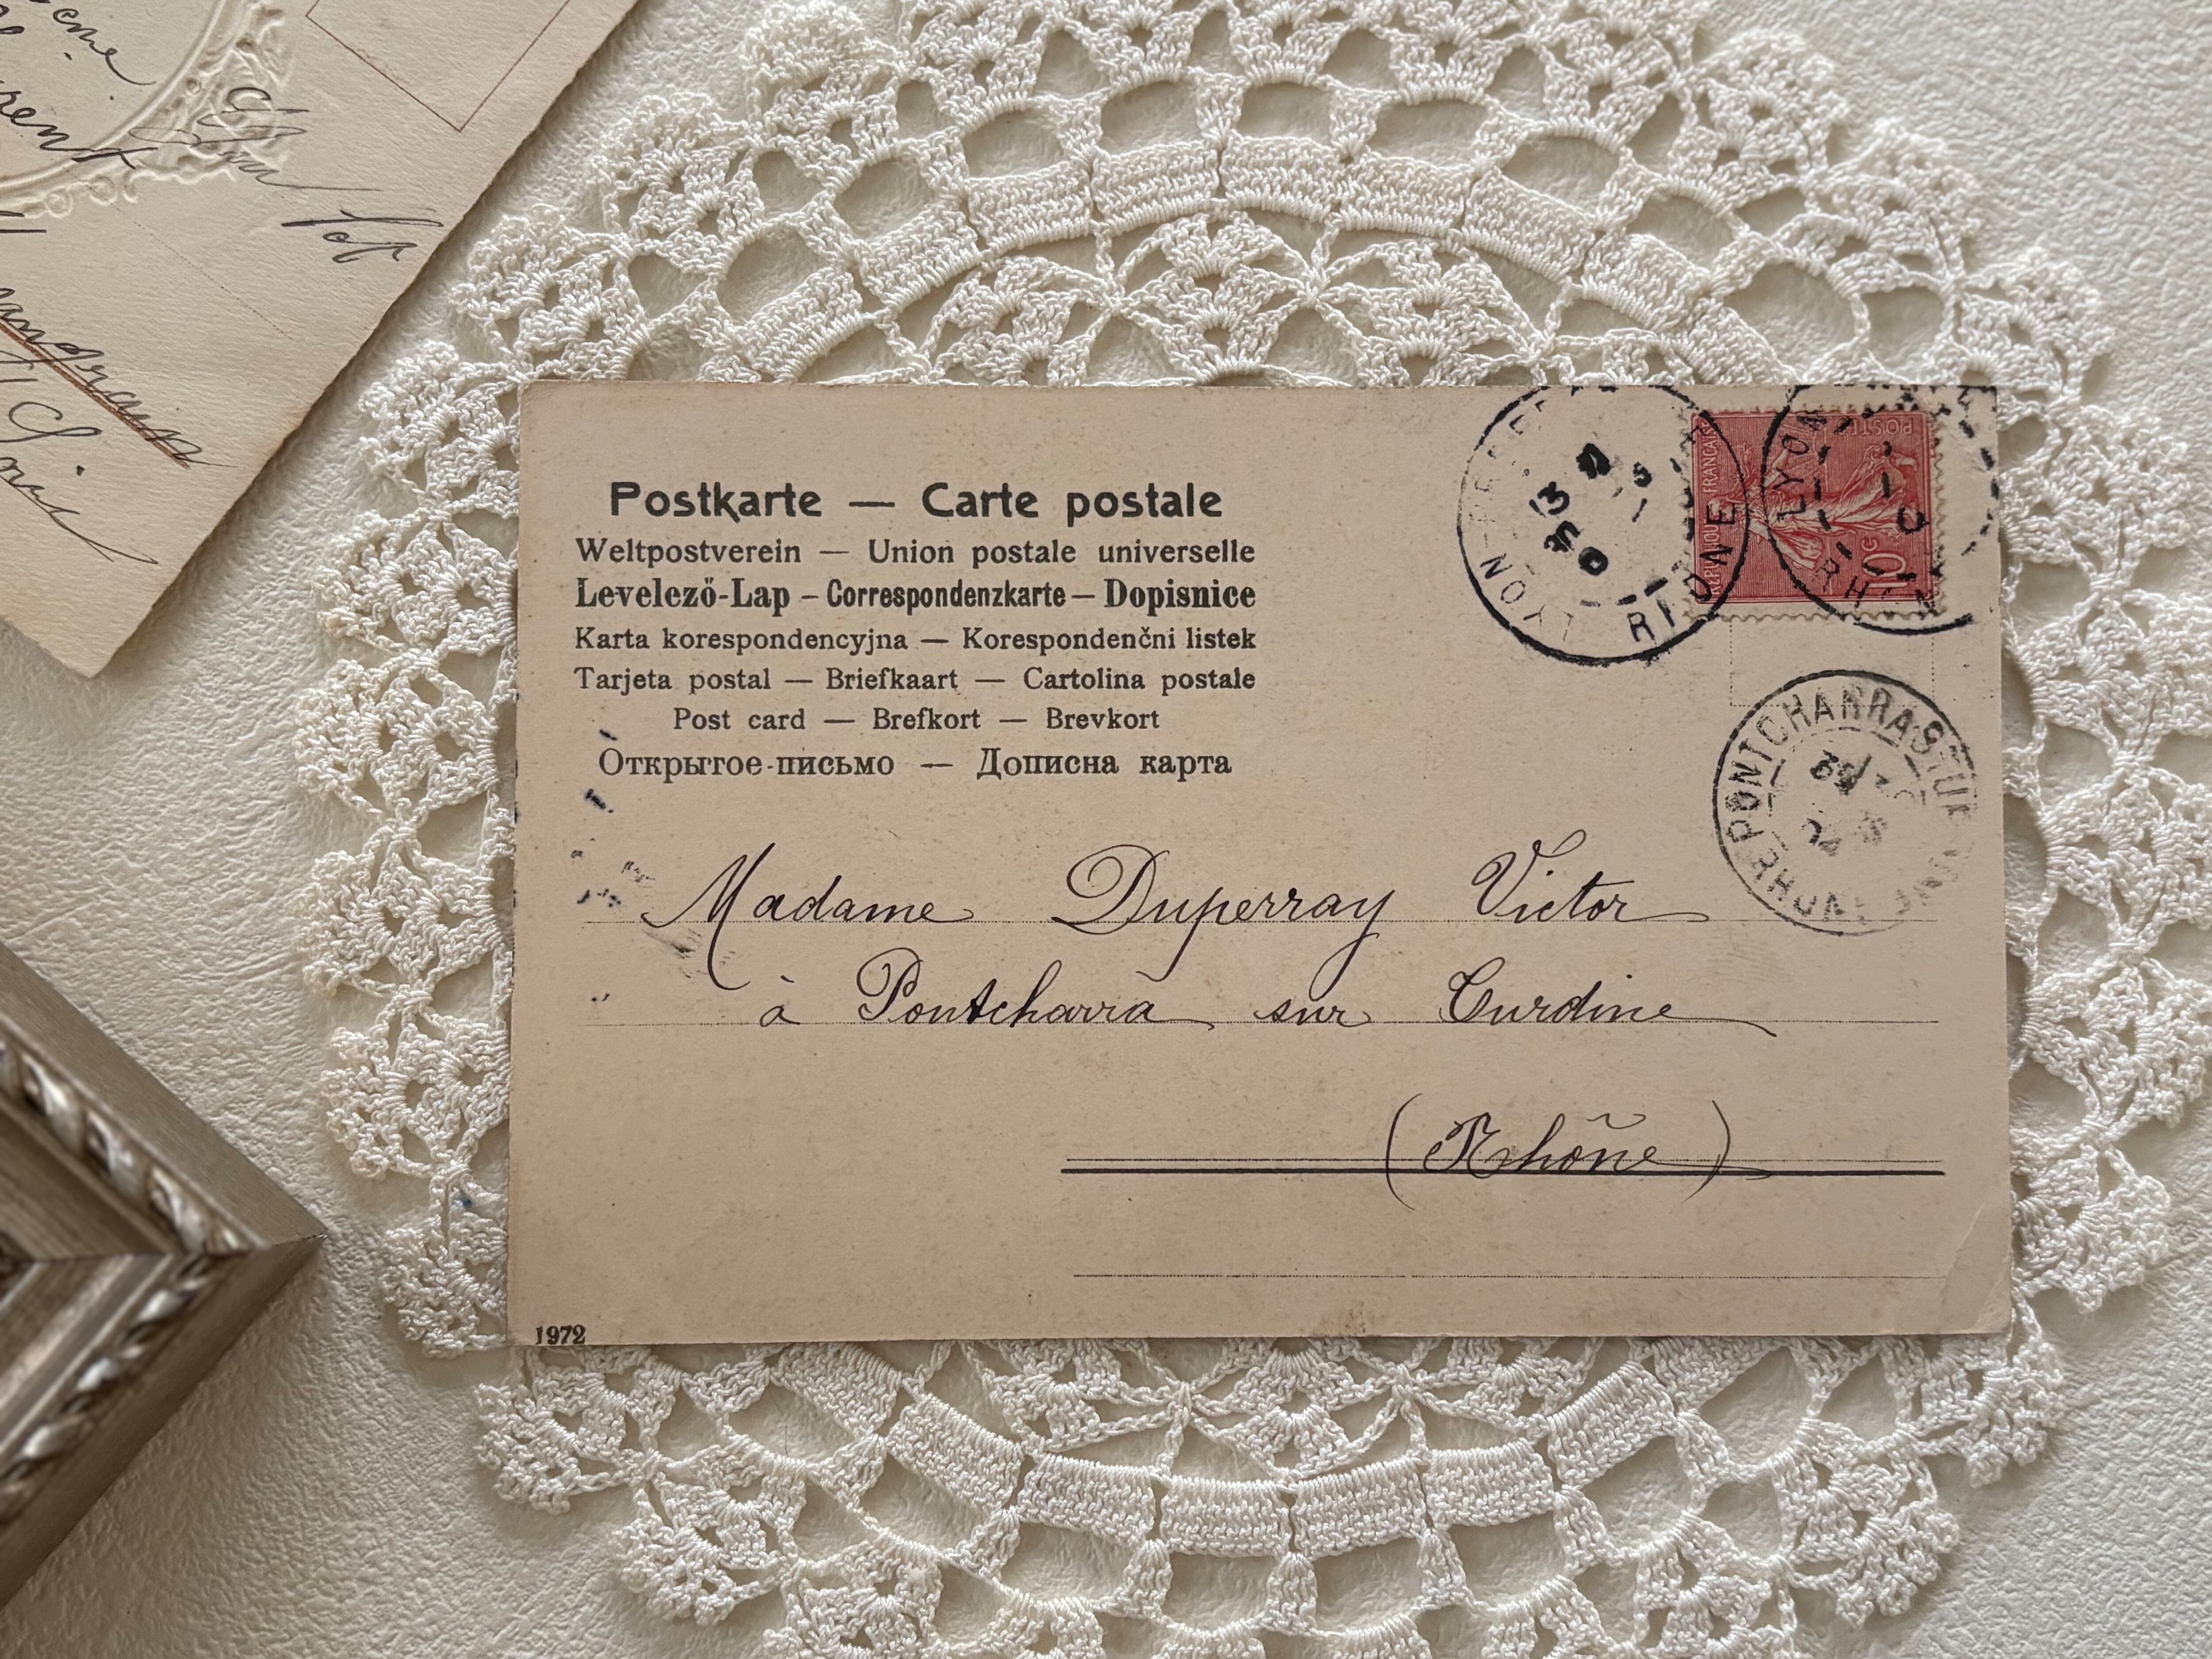 Postkarte — Carte postale
Weltpostverein — Union postale universelle
Levelező-Lap – Correspondenzkarte — Dopisnice
Karta korespondencyjna — Korespondenčni listek
Tarjeta postal — Briefkaart — Cartolina postale
Post card — Brefkort — Brevkort
Открытое-письмо — Дописна карта
LYON
RHONE
REPUBLIQUE FRANCAISE
POSTES
10c
LYON
PONTCHARRA S TUR
RHONE
Madame Duperray Victor
à Pontcharra sur Turdine
(Rhône)
1972